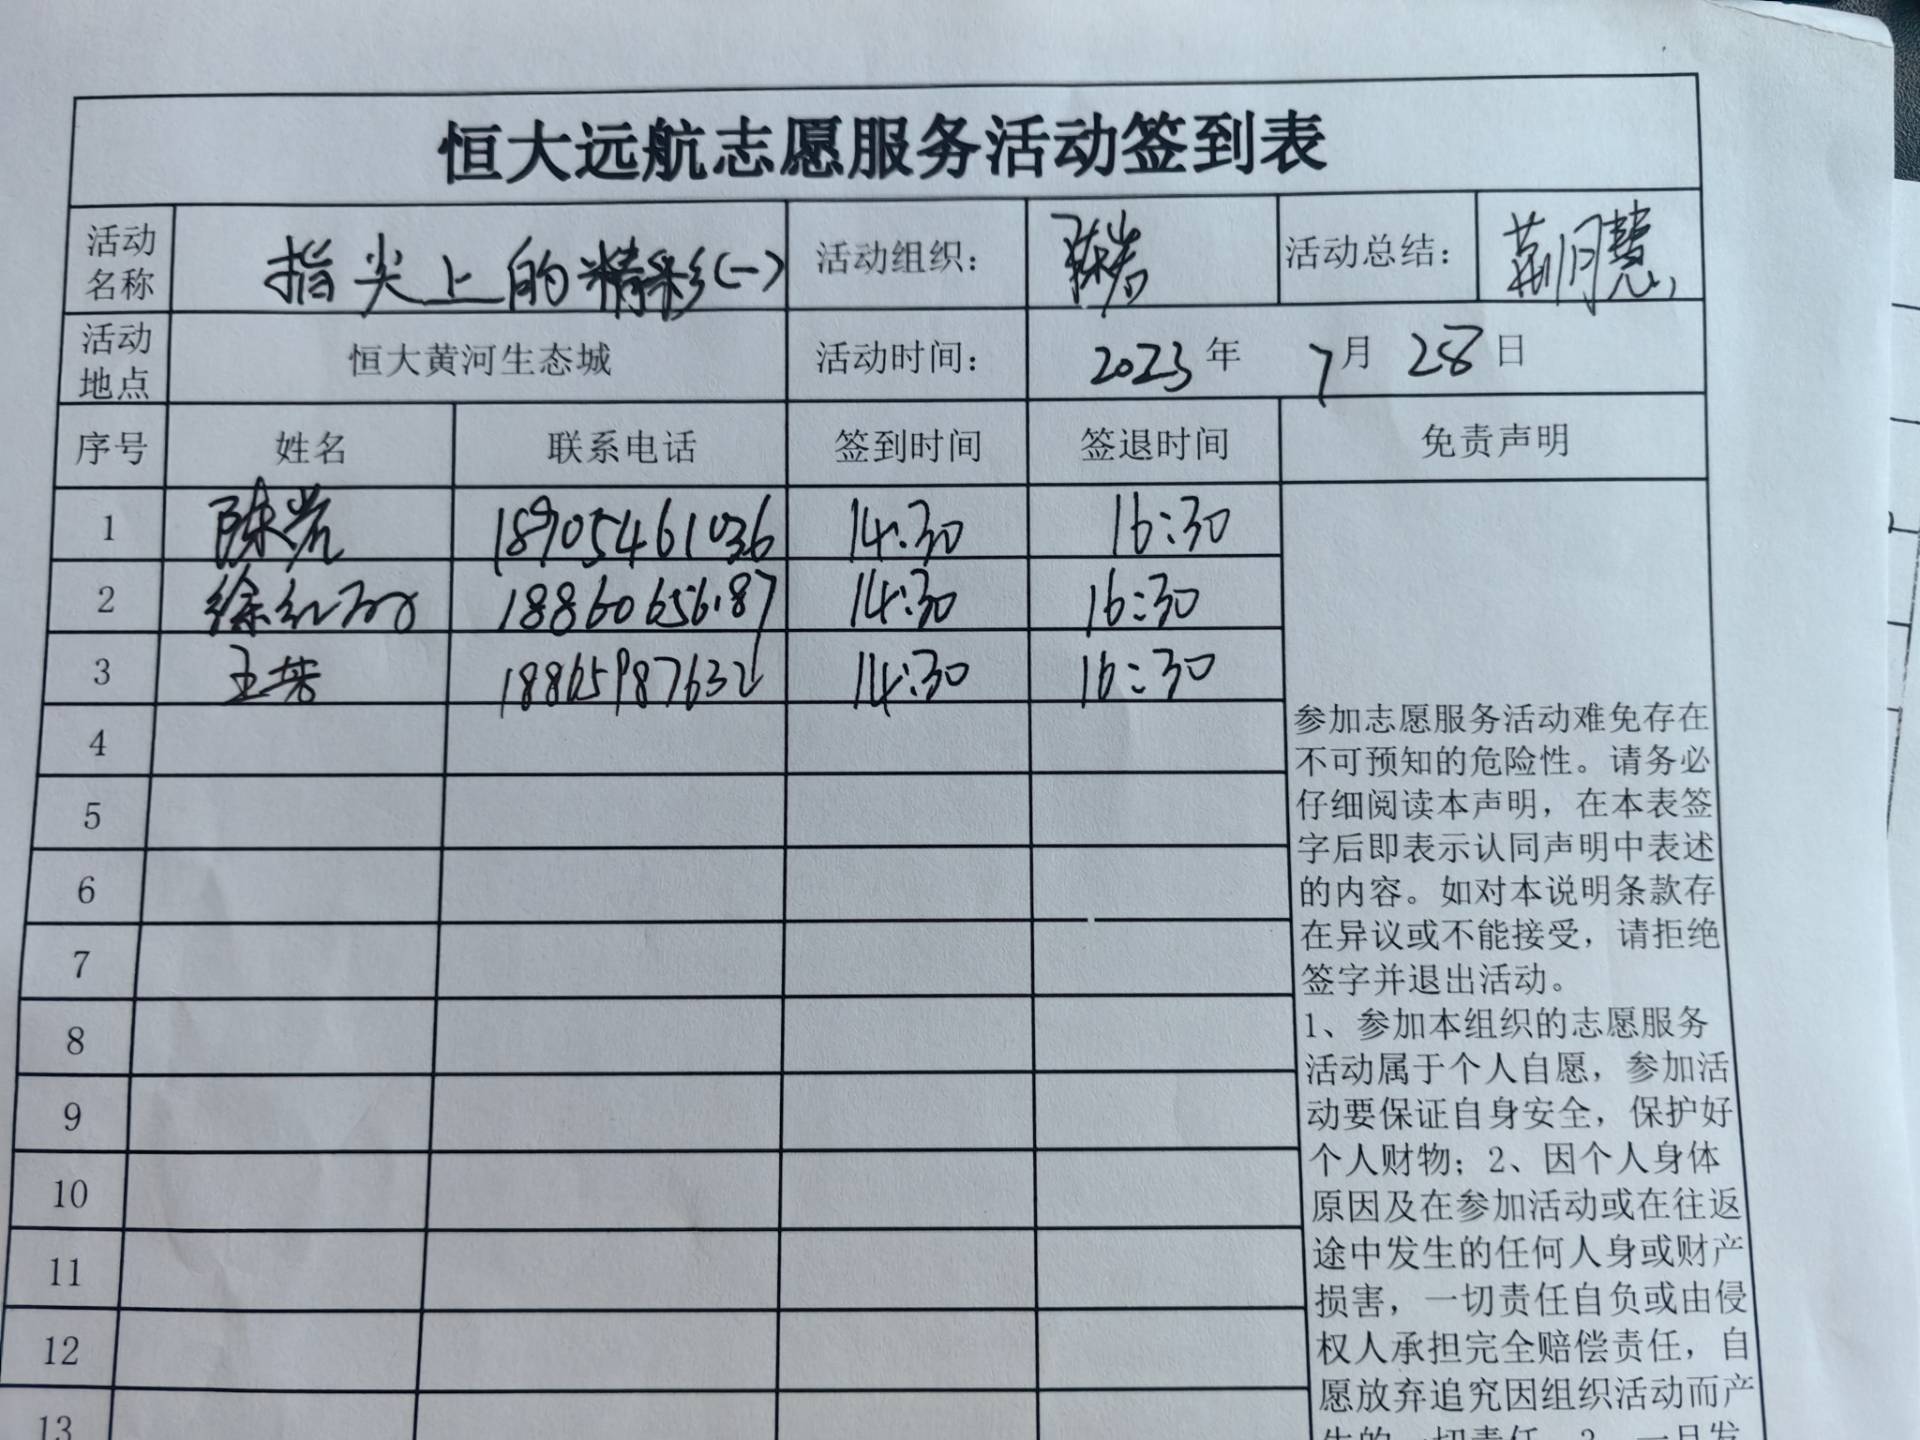 恒大远航志愿服务活动签到表
活动名称 指尖上的精彩(一) 活动组织： 陈岩 活动总结： 荆月慧
活动地点 恒大黄河生态城 活动时间： 2023年 7月 28日
序号 姓名 联系电话 签到时间 签退时间 免责声明
1 陈岩 18905461036 14:30 16:30
2 徐红 18860656187 14:30 16:30
3 王芳 18865987632 14:30 16:30
4
5
6
7
8
9
10
11
12
13
参加志愿服务活动难免存在
不可预知的危险性。请务必
仔细阅读本声明，在本表签
字后即表示认同声明中表述
的内容。如对本说明条款存
在异议或不能接受，请拒绝
签字并退出活动。
1、参加本组织的志愿服务
活动属于个人自愿，参加活
动要保证自身安全，保护好
个人财物；2、因个人身体
原因及在参加活动或在往返
途中发生的任何人身或财产
损害，一切责任自负或由侵
权人承担完全赔偿责任，自
愿放弃追究因组织活动而产
生的一切责任。3、一旦发